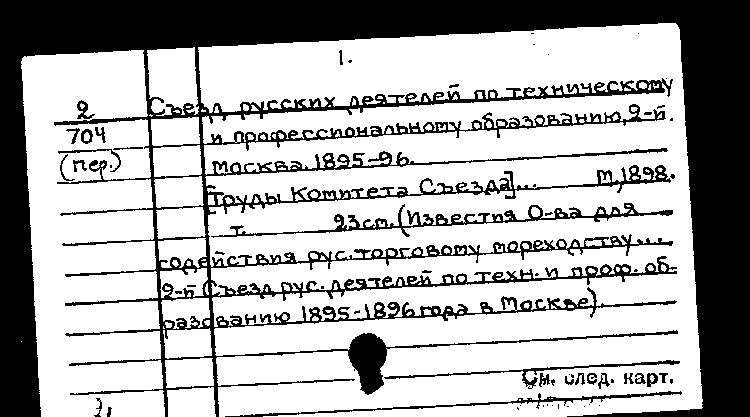 1.
2 Съезд русских деятелей по техническому
704 и профессиональному образованию, 2-й.
(пер.) Москва. 1895-96.
[Труды Комитета Съезда]... М., 1898.
т. 23см. (Известия О-ва для
содействия рус. торговому мореходству...
2-й Съезд рус. деятелей по техн. и проф. об-
разованию 1895-1896 года в Москве).
См. след. карт.